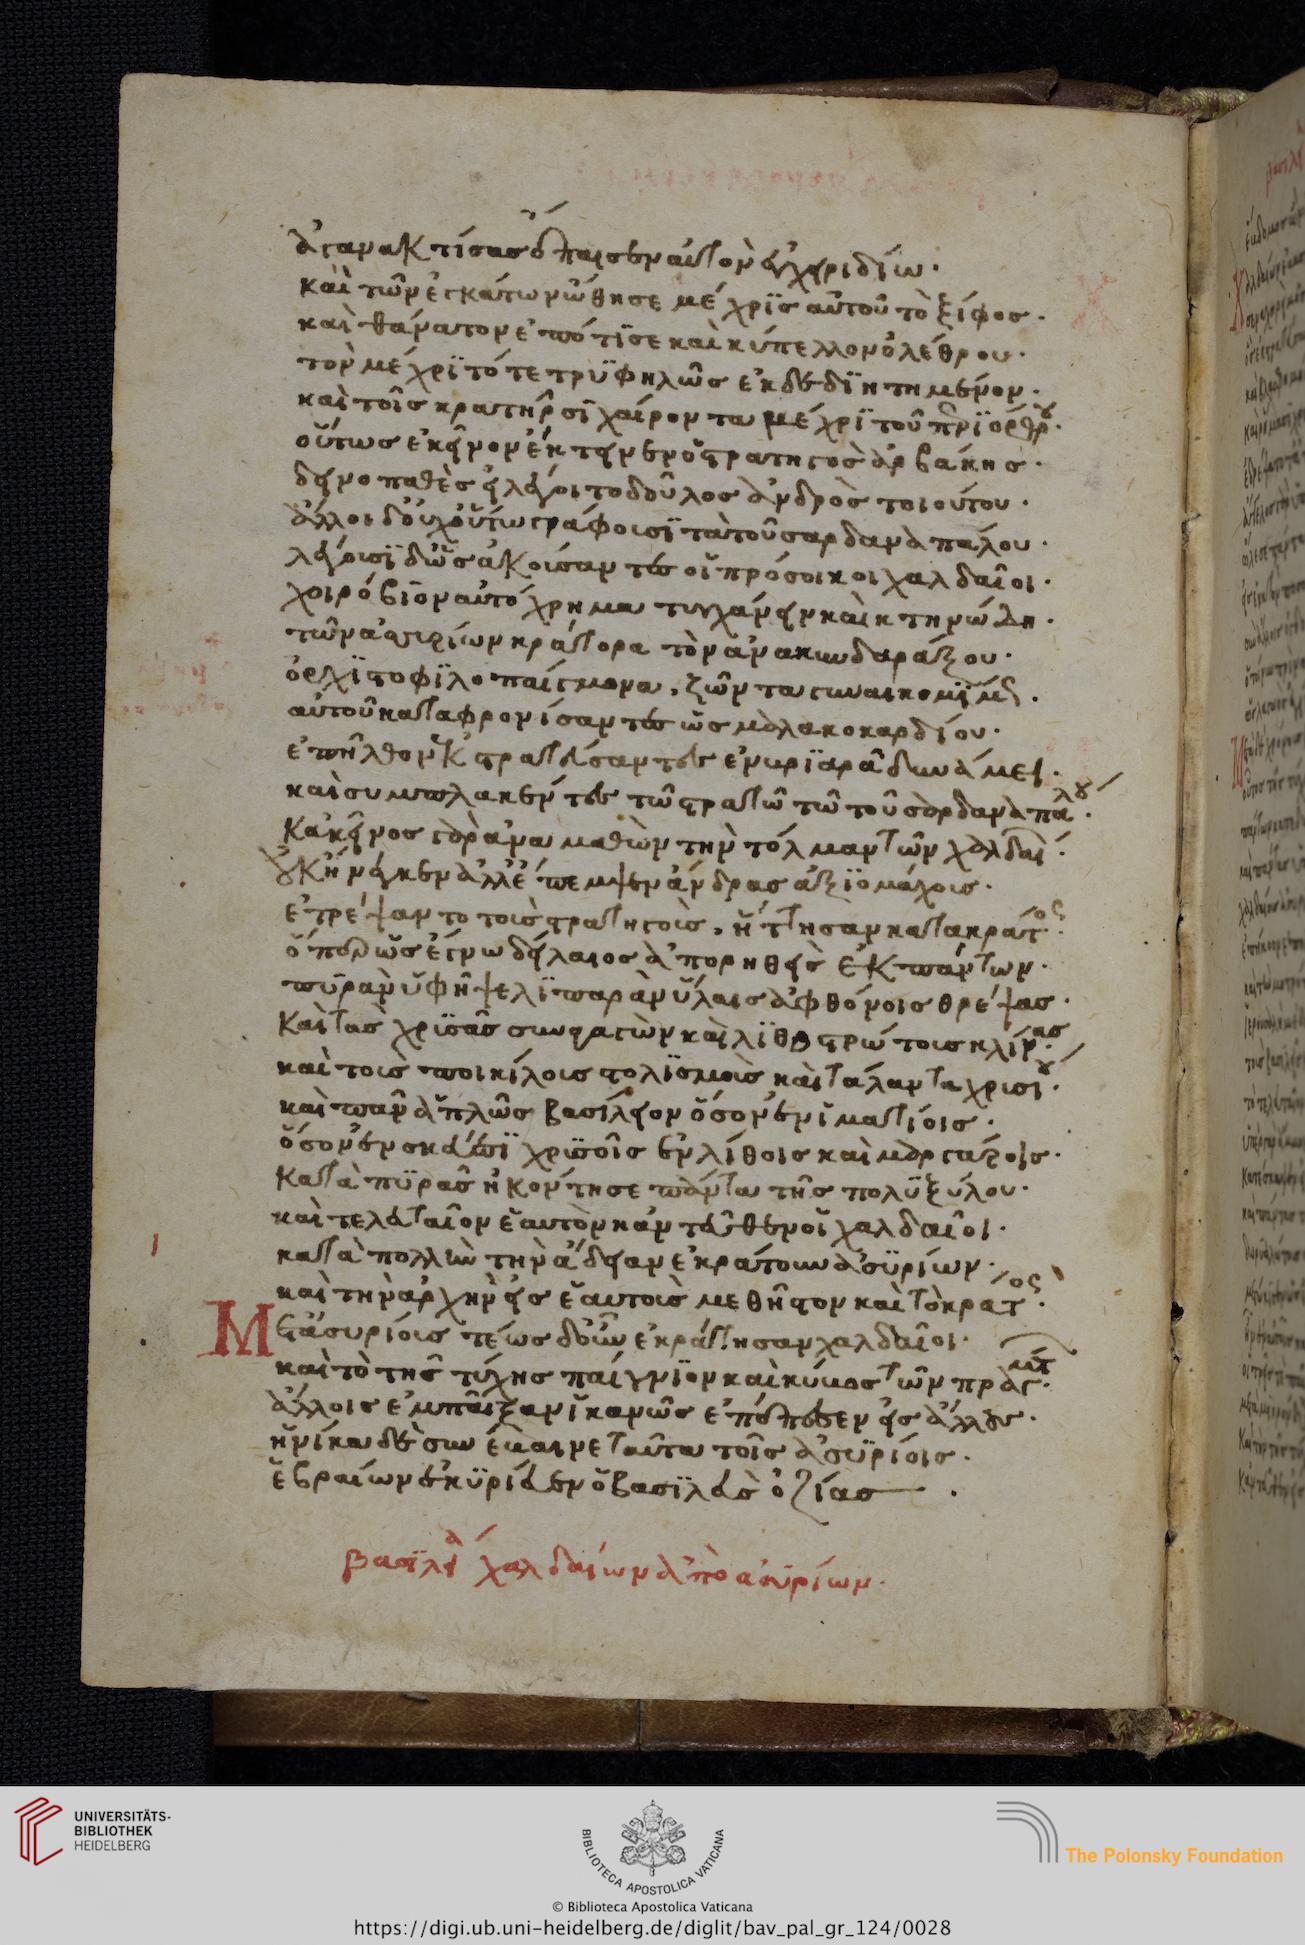 ἀγανακτίσας ὅλπαισεν αὐτὸν ἐγχειριδίω·
καὶ τῶν ἐγκάτων ὤθησε μέχρϊς αὐτοῦ τὸ ξίφος·
καὶ θάνατον ἐπότϊσε καὶ κύπελλον ὀλέθρου·
τὸν μέχρϊ τότε τρϋφηλῶς ἐκδεδϊητημένον·
καὶ τοῖς κρατῆρσϊ χαίροντα μέχρϊ τοῦ πρϊὄρθρου·
οὕτως ἐκεῖνον ἔκτεινεν ὁ στρατηγὸς ἀρβάκης·
δεινοπαθὲς εἰ λέγοιτο δοῦλος ἀνδρὸς τοιούτου·
ἄλλοι δ' οὐχ οὕτω γράφουσϊ τὰ τοῦ σαρδαναπάλου·
λέγουσϊ δ' ὡς ἀκούσαντες οἱ πρόσοικοι χαλδαῖοι·
χοιρόβϊον αὐτόχρημα τυγχάνειν καὶ κτηνώδη·
τῶν ἀσυρίων κράτορα τὸν ἀνακυνδαράξου·
ὀρχϊστοφϊλοπαίγμονα, ζῶντα γυναικομϊμ
αὐτοῦ καταφρονίσαντες ὡς μαλακοκαρδίου·
ἐπῆλθον κ στρατεύσαντες ἐν μυρϊάσϊ δυνάμει·
καὶ συμπλακέντες τῶ στρατῶ τῶ τοῦ σαρδαναπάλου·
κἀκεῖνος γὰρ ἀναμαθὼν τὴν τόλμαν τῶν χαλδαί·
οὐκ ἤνεγκεν ἀλλ' ἔπεμψεν ἄνδρας ἀξϊομάχους·
ἐτρέψαντο τοὺς στρατηγοὺς, ἥττησαν κατακράτος·
ὅπερ ὡς ἔγνω δείλαιος ἀπορηθεὶς ἐκ πάντων·
πυρὰν ὑφῆψε λϊπαρὰν ὕλαις ἀφθόνοις θρέψας·
καὶ τὰς χρϋσᾶς συναγαγὼν καὶ λϊθοστρώτους κλίνας·
καὶ τοὺς ποικίλους στολϊσμοὺς καὶ τάλαντα χρυσίου·
καὶ πᾶν ἁπλῶς βασίλειον ὅσον ἐν ἱματίοις·
ὅσον ἐν σκεύεσϊ χρϋσοῖς ἐν λίθοις καὶ μαργάροις·
κατὰ πϋρᾶς ἠκόντησε πάντα τῆς πολϋξύλου·
καὶ τελευταῖον ἑαυτὸν κἀντεῦθεν οἱ χαλδαῖοι·
κατὰ πολλὴν τὴν ἄδειαν ἐκράτουν ἀσϋρίων·
καὶ τὴν ἀρχὴν εἰς ἑαυτοὺς μεθῆστον καὶ τὸ κράτος·
Μετ' ἀσυρίοις τέως δ' οὖν ἐκράτησαν χαλδαῖοι·
καὶ τὸ τῆς τύχης παίγνϊον καὶ κύβος τῶν πραγμάτ·
ἄλλοις ἐμπαῖξαν ἱκανῶς ἐπέπεσεν εἰς ἄλλους·
ἡνίκα δὲ συνέβαινε ταῦτα τοῖς ἀσϋρίοις·
ἑβραίων ἐκϋρίευεν ὁ βασϊλεὺς ὀζίας
βασϊλεία χαλδαίων ἀπὸ ἀσϋρίων·
UNIVERSITÄTS-
BIBLIOTHEK
HEIDELBERG
BIBLIOTECA APOSTOLICA VATICANA
The Polonsky Foundation
© Biblioteca Apostolica Vaticana
https://digi.ub.uni-heidelberg.de/diglit/bav_pal_gr_124/0028